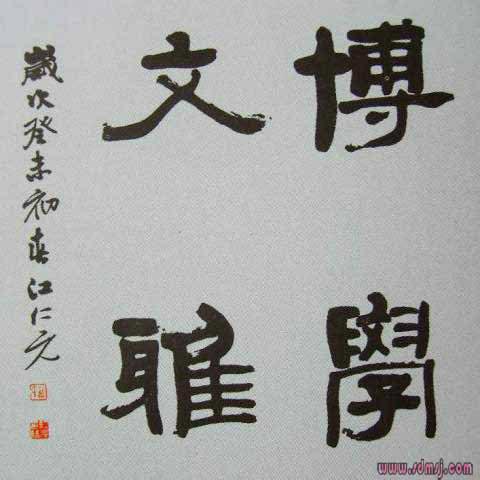 博學
文雅
歲次癸未初春江仁元
www.sdmsj.com